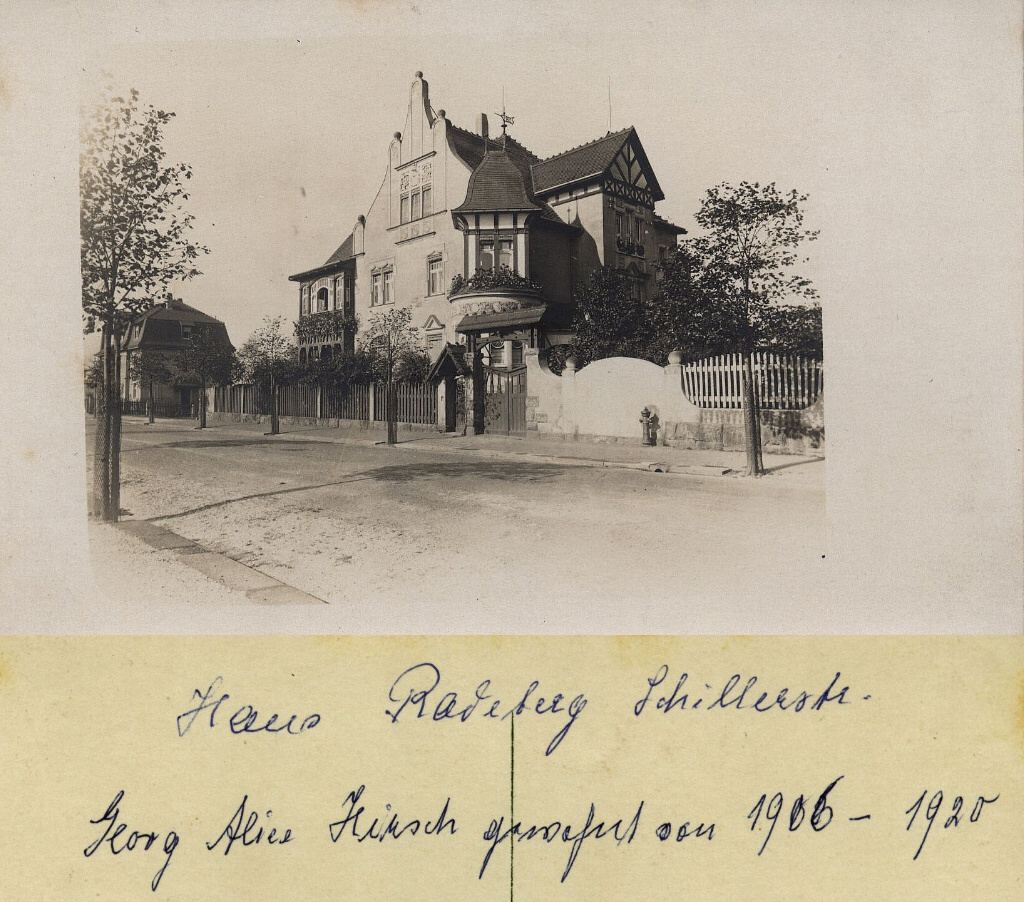 Haus Radeberg Schillerstr.
Georg Alice Hirsch gewohnt von 1906 – 1920